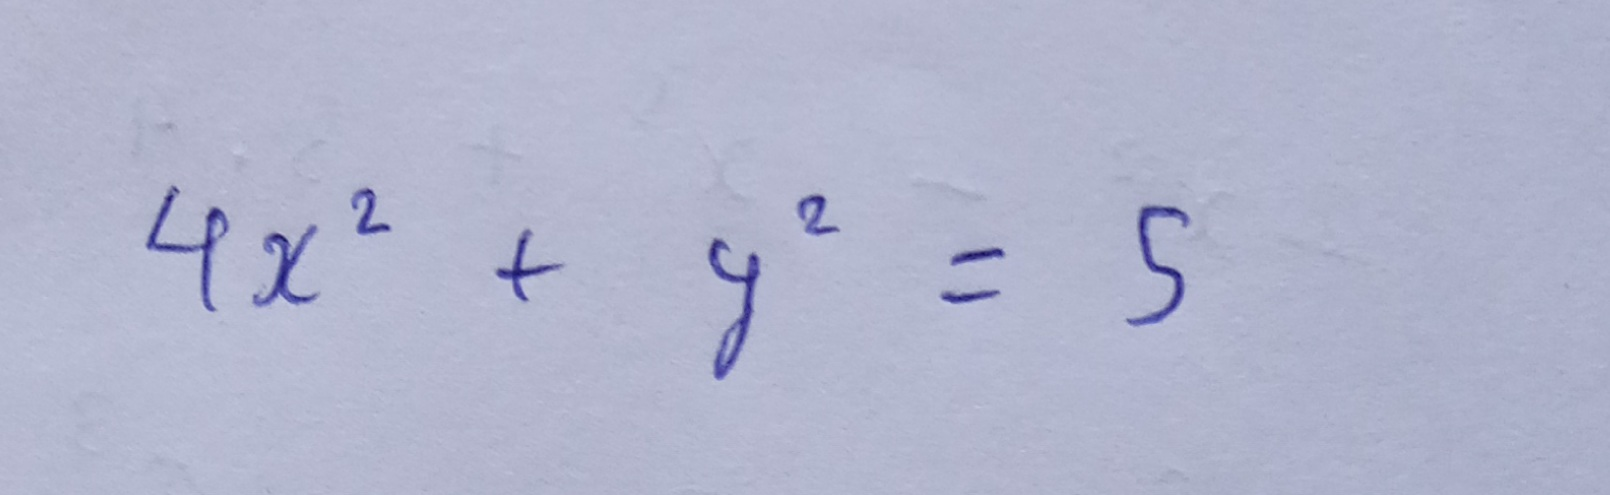 4x² + y² = 5